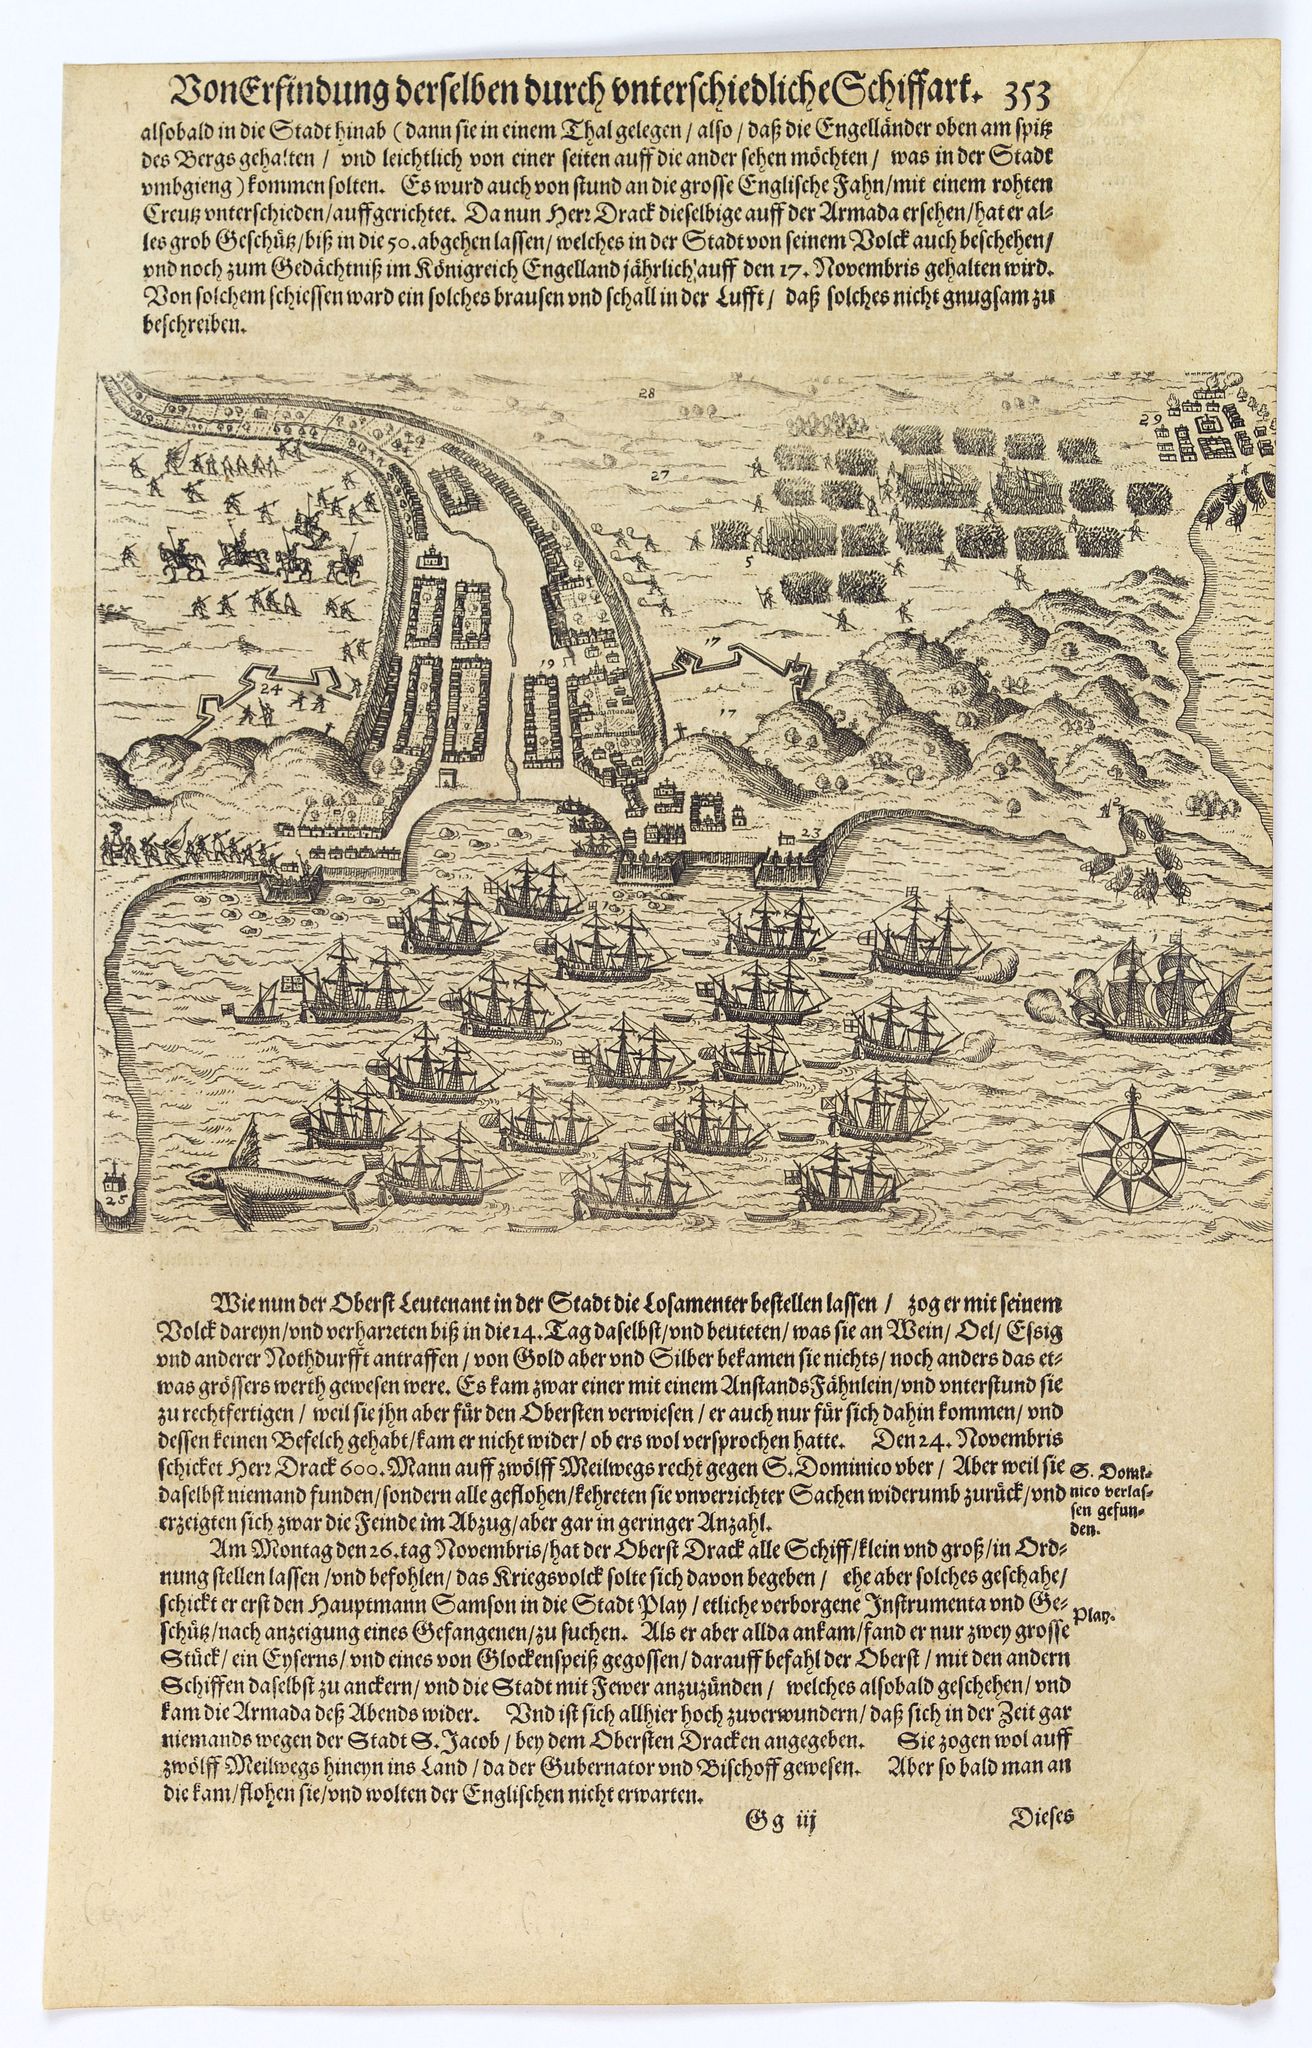 Von Erfindung derselben durch vnterschiedliche Schiffart. 353
alsobald in die Stadt hinab (dann sie in einem Thal gelegen / also / daß die Engelländer oben am spitz
des Bergs gehalten / vnd leichtlich von einer seiten auff die ander sehen möchten / was in der Stadt
vmbgieng) kommen solten. Es wurd auch von stund an die grosse Englische Fahn/mit einem rohten
Creutz vnterschieden/auffgerichtet. Da nun Herr Drack dieselbige auff der Armada ersehen/hat er al-
les grob Geschütz/biß in die 50. abgehen lassen/welches in der Stadt von seinem Volck auch beschehen/
vnd noch zum Gedächtniß im Königreich Engelland jährlich auff den 17. Novembris gehalten wird.
Von solchem schiessen ward ein solches brausen vnd schall in der Lufft/ daß solches nicht gnugsam zu
beschreiben.
28
29
27
5
17
19
24
17
23
25
Wie nun der Oberst Leutenant in der Stadt die Losamenter bestellen lassen / zog er mit seinem
Volck dareyn/vnd verharreten biß in die 14. Tag daselbst/vnd beuteten/was sie an Wein/Oel/Essig
vnd anderer Nothdurfft antraffen/von Gold aber vnd Silber bekamen sie nichts/noch anders das et-
was grössers werth gewesen were. Es kam zwar einer mit einem Anstands Fähnlein/vnd vnterstund sie
zu rechtfertigen / weil sie jhn aber für den Obersten verwiesen / er auch nur für sich dahin kommen/vnd
dessen keinen Befelch gehabt/kam er nicht wider/ob ers wol versprochen hatte. Den 24. Novembris
schicket Herr Drack 600. Mann auff zwölff Meilwegs recht gegen S. Dominico vber/ Aber weil sie
daselbst niemand funden/sondern alle geflohen/kehreten sie vnverrichter Sachen widerumb zurück/vnd
erzeigten sich zwar die Feinde im Abzug/aber gar in geringer Anzahl.
S. Domi-
nico verlas-
sen gefun-
den.
Am Montag den 26. tag Novembris/hat der Oberst Drack alle Schiff/klein vnd groß/in Ord-
nung stellen lassen/vnd befohlen/das Kriegsvolck solte sich davon begeben/ ehe aber solches geschahe/
schickt er erst den Hauptmann Samson in die Stadt Play / etliche verborgene Instrumenta vnd Ge-
schütz/nach anzeigung eines Gefangenen/zu suchen. Als er aber allda ankam/fand er nur zwey grosse
Play.
Stück/ein Eyserns/vnd eines von Glockenspeiß gegossen/darauff befahl der Oberst/mit den andern
Schiffen daselbst zu anckern/vnd die Stadt mit Fewer anzuzünden/ welches alsobald geschehen/vnd
kam die Armada deß Abends wider. Vnd ist sich allhier hoch zuverwundern/daß sich in der Zeit gar
niemands wegen der Stadt S. Jacob/bey dem Obersten Dracken angegeben. Sie zogen wol auff
zwölff Meilwegs hineyn ins Land/da der Gubernator vnd Bischoff gewesen. Aber so bald man an
die kam/flohen sie/vnd wolten der Englischen nicht erwarten.
Gg iij Dieses